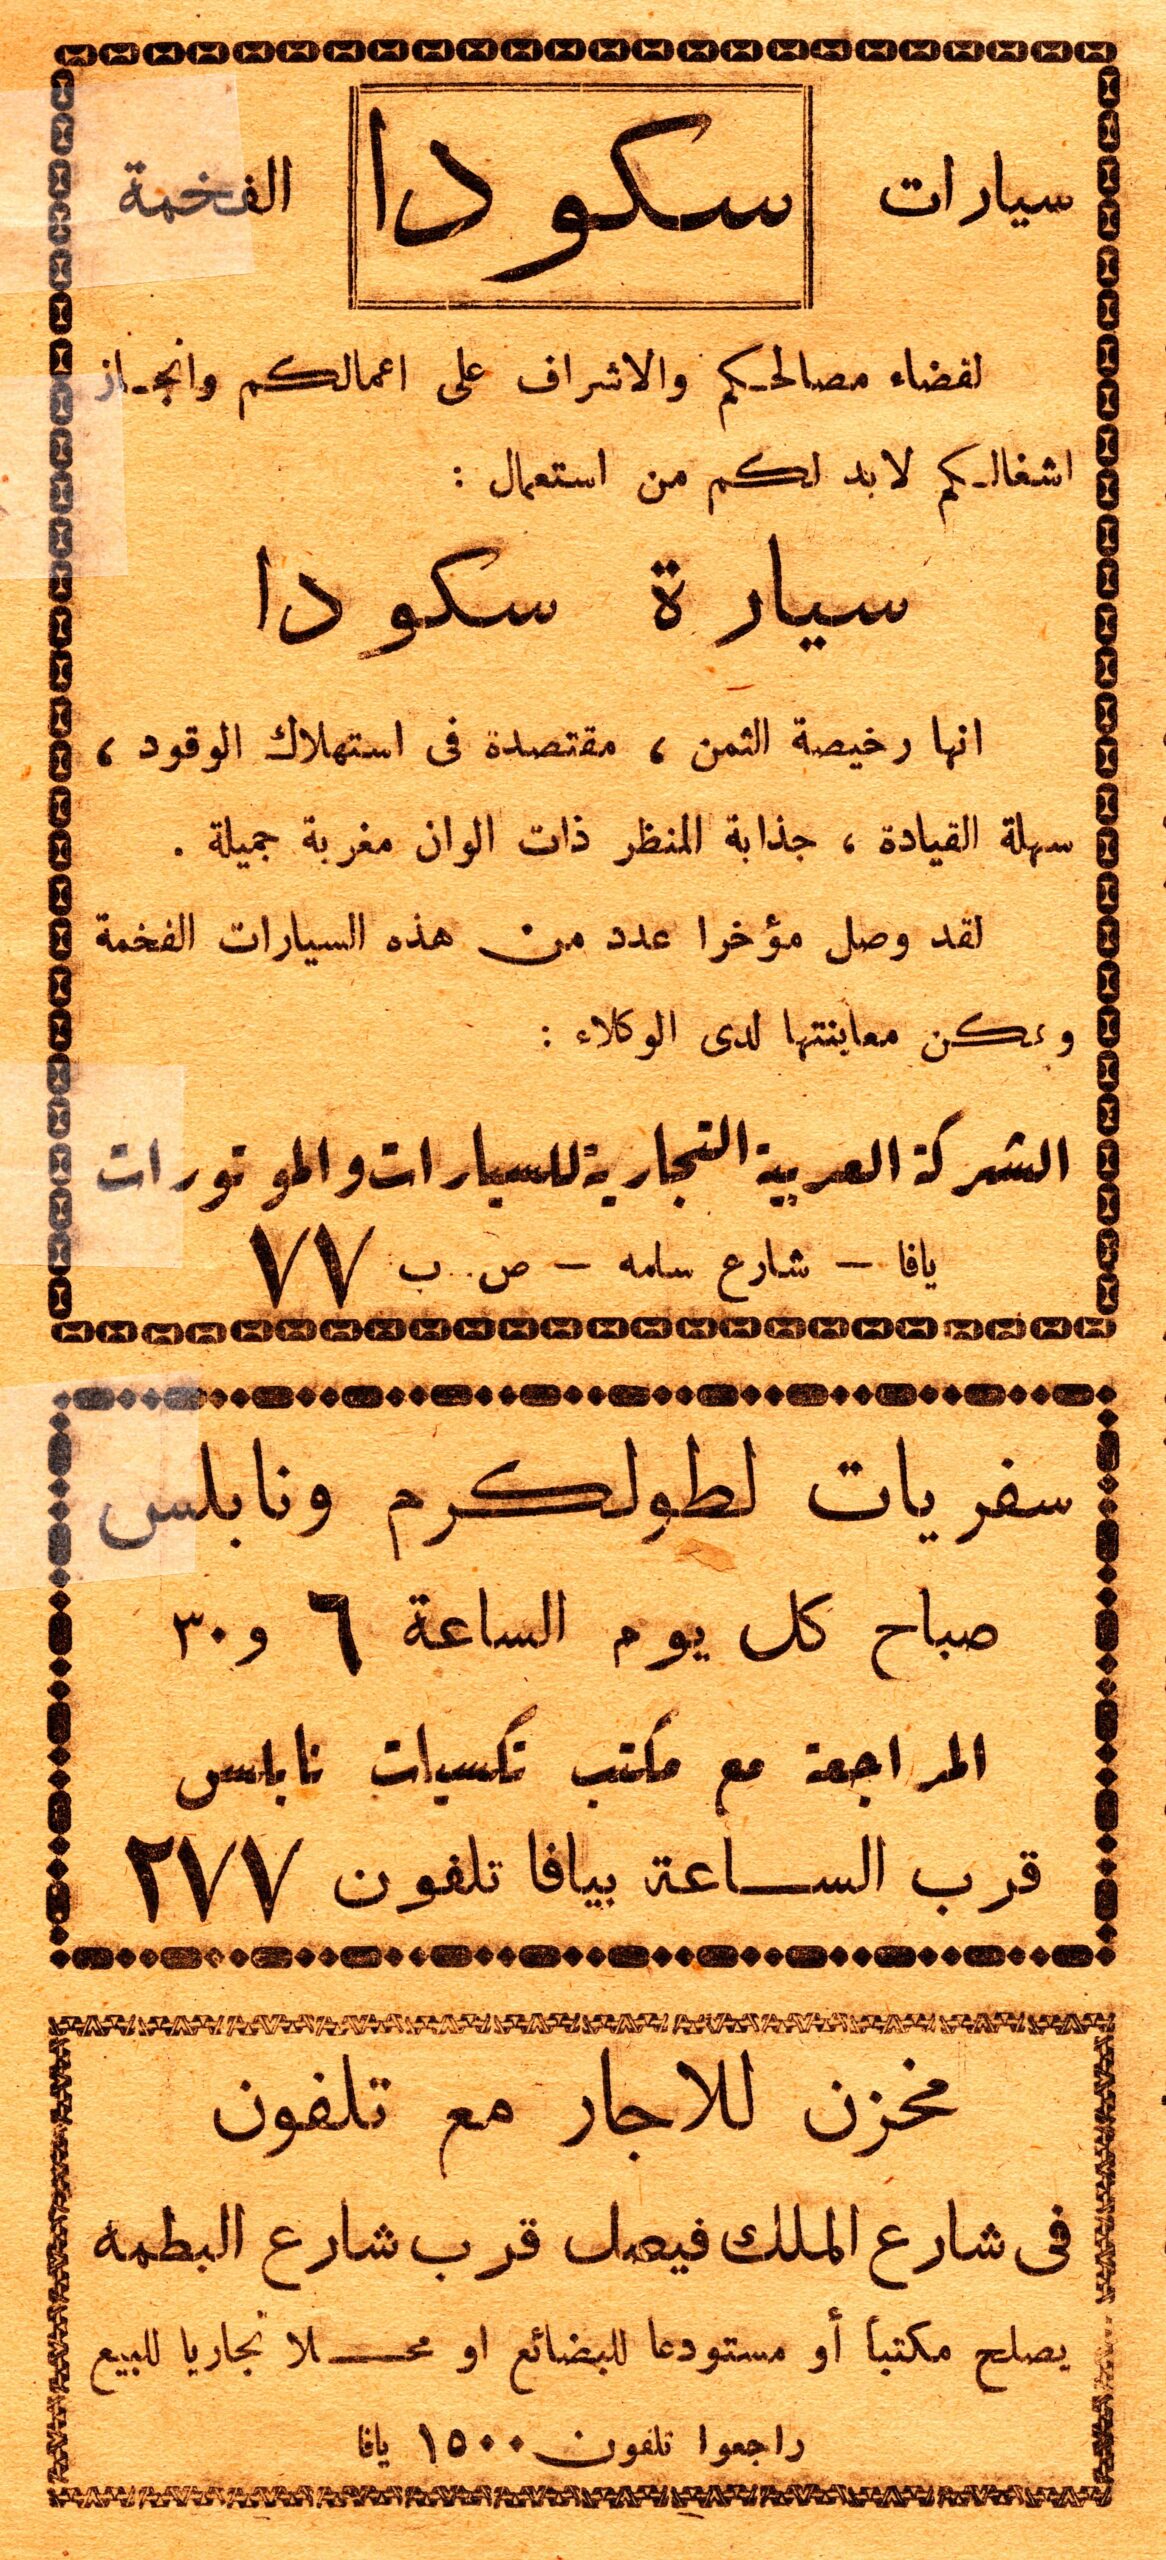 سيارات سكودا الفخمة
لقضاء مصالحكم والاشراف على اعمالكم وانجاز
اشغالكم لابد لكم من استعمال :
سيارة سكودا
انها رخيصة الثمن ، مقتصدة فى استهلاك الوقود ،
سهلة القيادة ، جذابة المنظر ذات الوان مغربة جميلة .
لقد وصل مؤخرا عدد من هذه السيارات الفخمة
ويمكن معاينتها لدى الوكلاء :
الشركة العربية التجارية للسيارات والموتورات
يافا — شارع سلمه — ص . ب ٧٧
سفريات لطولكرم ونابلس
صباح كل يوم الساعة ٦ و٣٠
المراجعة مع مكتب تكسيات نابلس
قرب الساعة بيافا تلفون ٢٧٧
مخزن للاجار مع تلفون
فى شارع الملك فيصل قرب شارع البطمه
يصلح مكتبا أو مستودعا للبضائع او محلا تجاريا للبيع
راجعوا تلفون ١٥٠٠ يافا